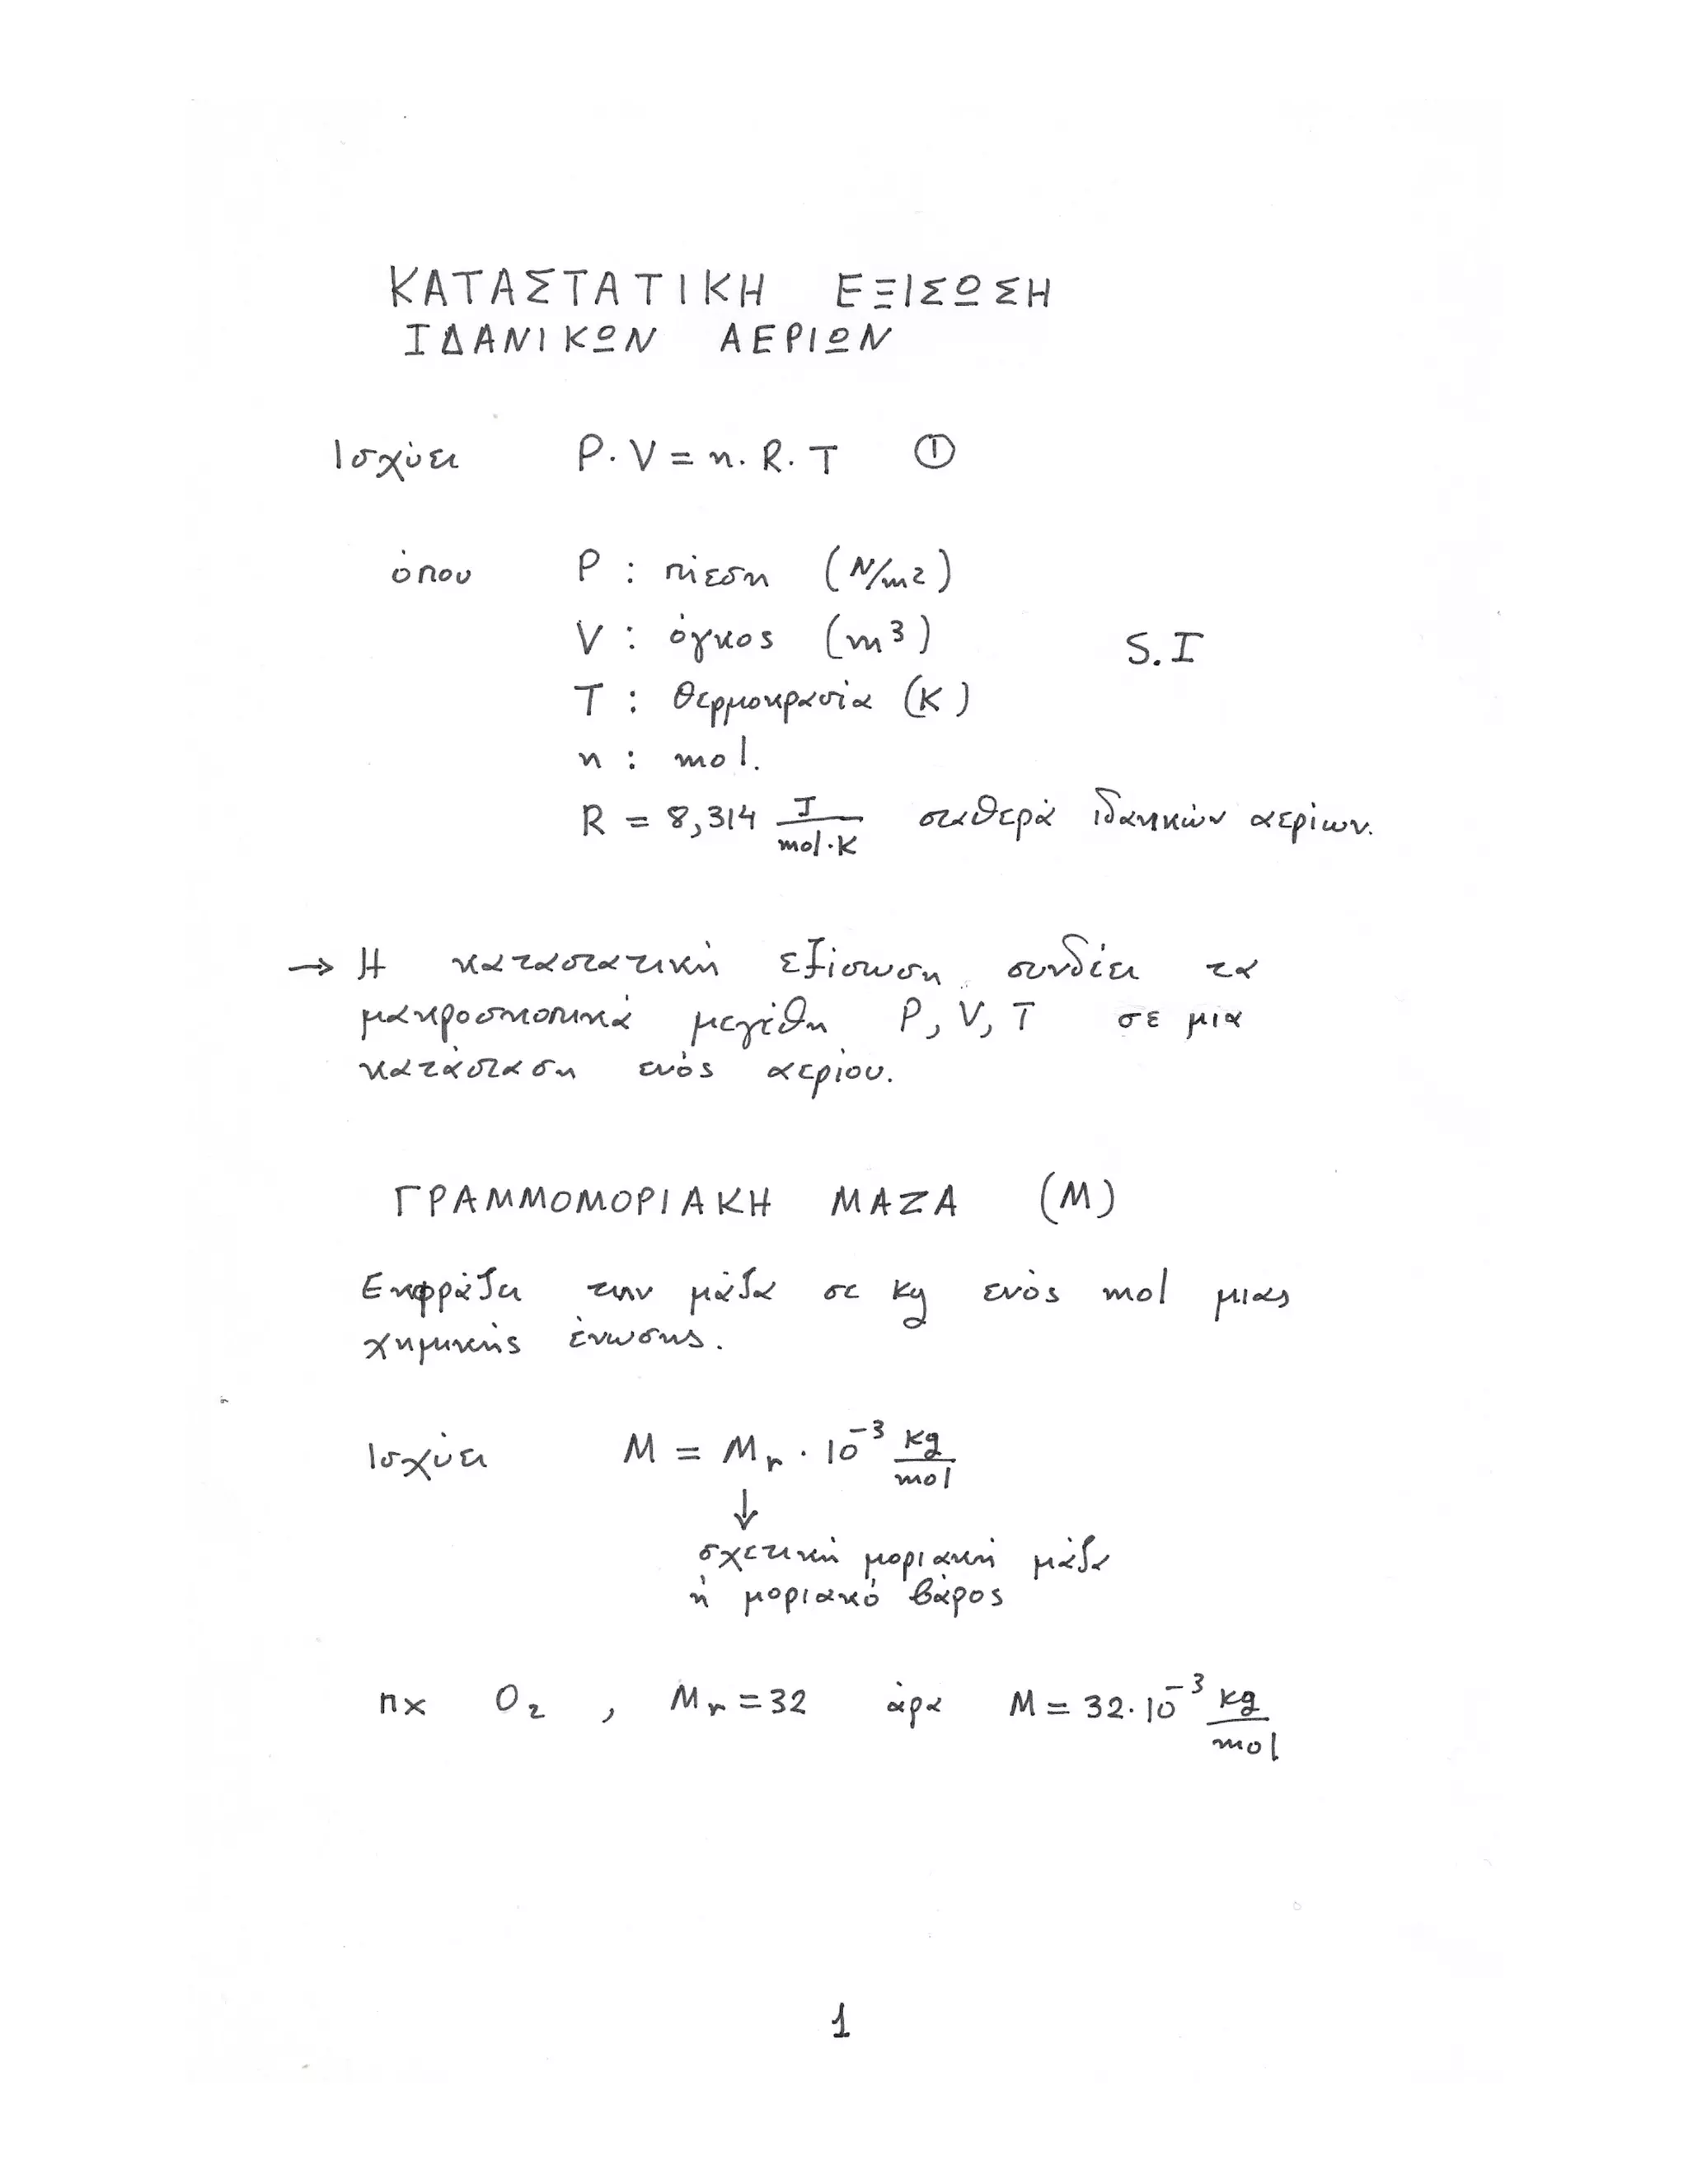 ΚΑΤΑΣΤΑΤΙΚΗ ΕΞΙΣΩΣΗ
ΙΔΑΝΙΚΩΝ ΑΕΡΙΩΝ
Ισχύει P·V = n·R·T ①
όπου P : πίεση (N/m2)
V : όγκος (m³)
S.I
T : θερμοκρασία (K)
n : mol.
R = 8,314 J/mol·K σταθερά ιδανικών αερίων.
→ Η καταστατική εξίσωση συνδέει τα
μακροσκοπικά μεγέθη P, V, T σε μια
κατάσταση ενός αερίου.
ΓΡΑΜΜΟΜΟΡΙΑΚΗ ΜΑΖΑ (M)
Εκφράζει την μάζα σε kg ενός mol μιας
χημικής ένωσης.
Ισχύει M = Mr · 10⁻³ kg/mol
↓
σχετική μοριακή μάζα
ή μοριακό βάρος
πχ O₂ , Mr = 32 άρα M = 32·10⁻³ kg/mol
1